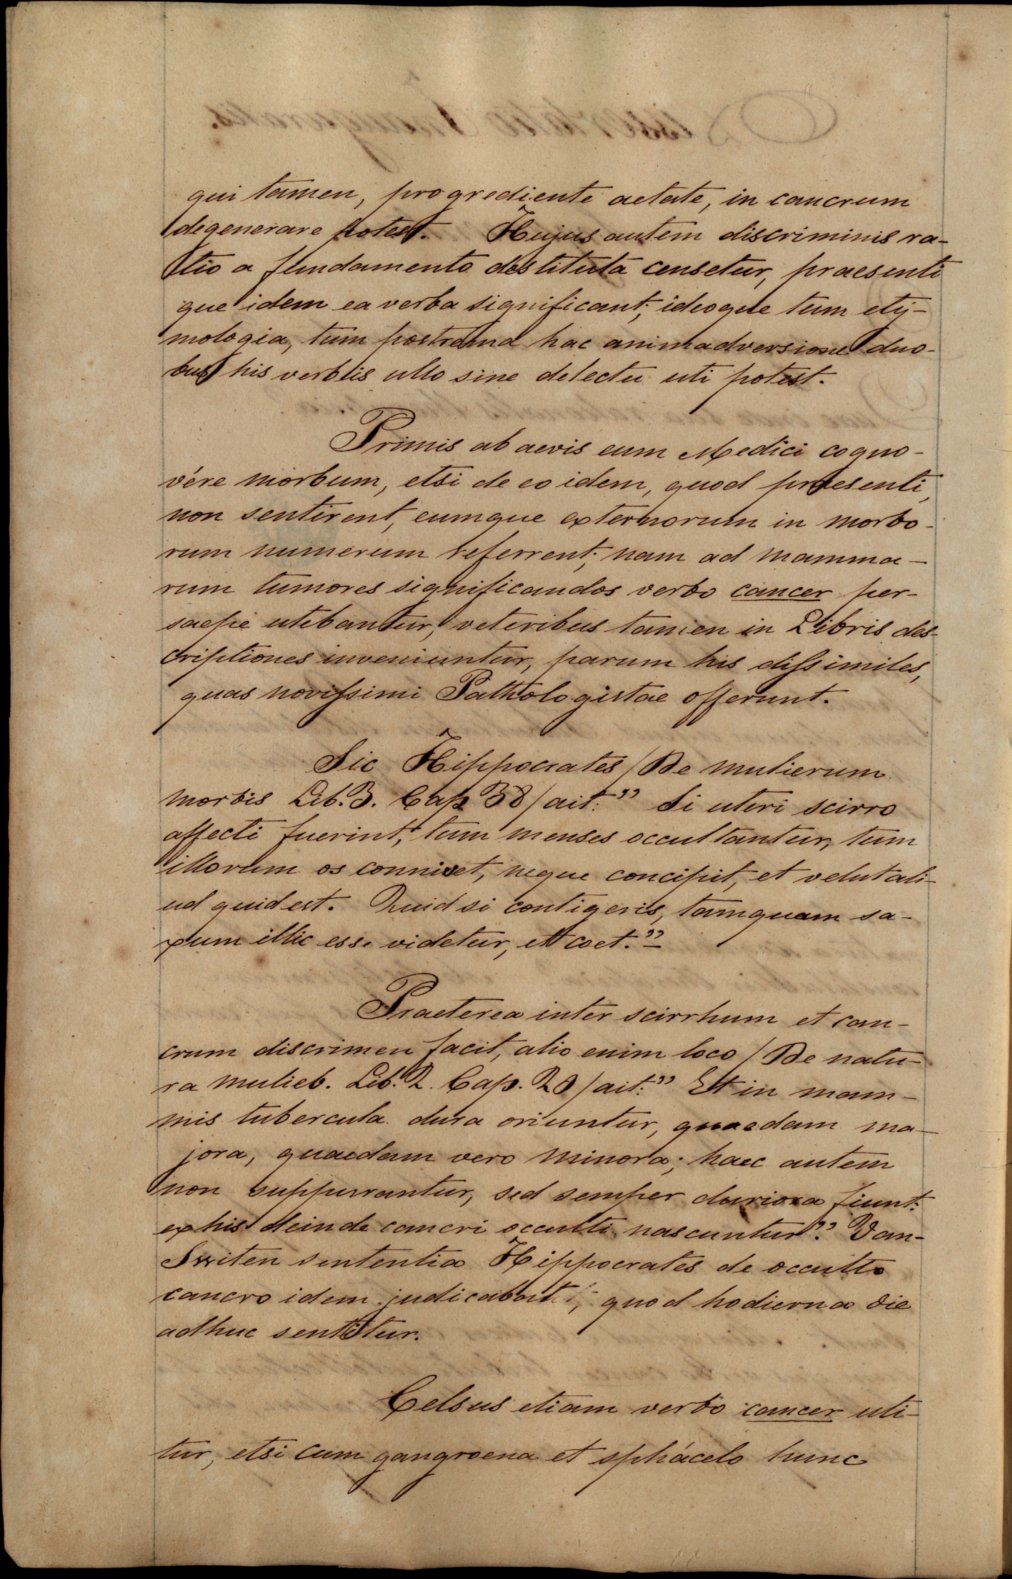 qui tamen, progrediente aetate, in cancrum
degenerare potest. Hujus autem discriminis ra-
tio a fundamento destituta censetur, praesenti
que idem ea verba significant; ideoque tum ety-
mologia, tum postrema hac animadversione duo-
bus his verbis ullo sine delectu uti potest.
Primis ab aevis eum Medici cogno-
vére morbum, etsi de eo idem, quod praesenti,
non sentirent, eumque externorum in morbo-
rum numerum referrent; nam ad mamma-
rum tumores significandos verbo cancer per-
saepe utebantur, veteribus tamen in Libris des-
criptiones inveniuntur, parum his dissimiles,
quas novissimi Pathologistae offerunt.
Sic Hippocrates /De mulierum
morbis Lib. 3. Cap 38/ ait: " Si uteri scirro
affecti fuerint, tum menses occultantur, tum
illorum os connivet, neque concipit, et velut ali-
ud quid est. Quid si contigeris, tamquam sa-
xum illic esse videtur, et coet."
Praeterea inter scirrhum et can-
crum discrimen facit, alio enim loco /De natu-
ra mulieb. Lib. 2. Cap. 20/ ait: " Et in mam-
mis tubercula dura oriuntur, quaedam ma-
jora, quaedam vero minora; haec autem
non suppurantur, sed semper duriora fiunt:
ex his deinde cancri occulti nascuntur". Van-
Switen sententia Hippocrates de occulto
cancro idem judicabat, quod hodierna die
adhuc sentitur.
Celsus etiam verbo cancer uti-
tur, etsi cum gangroena et sphácelo hunc